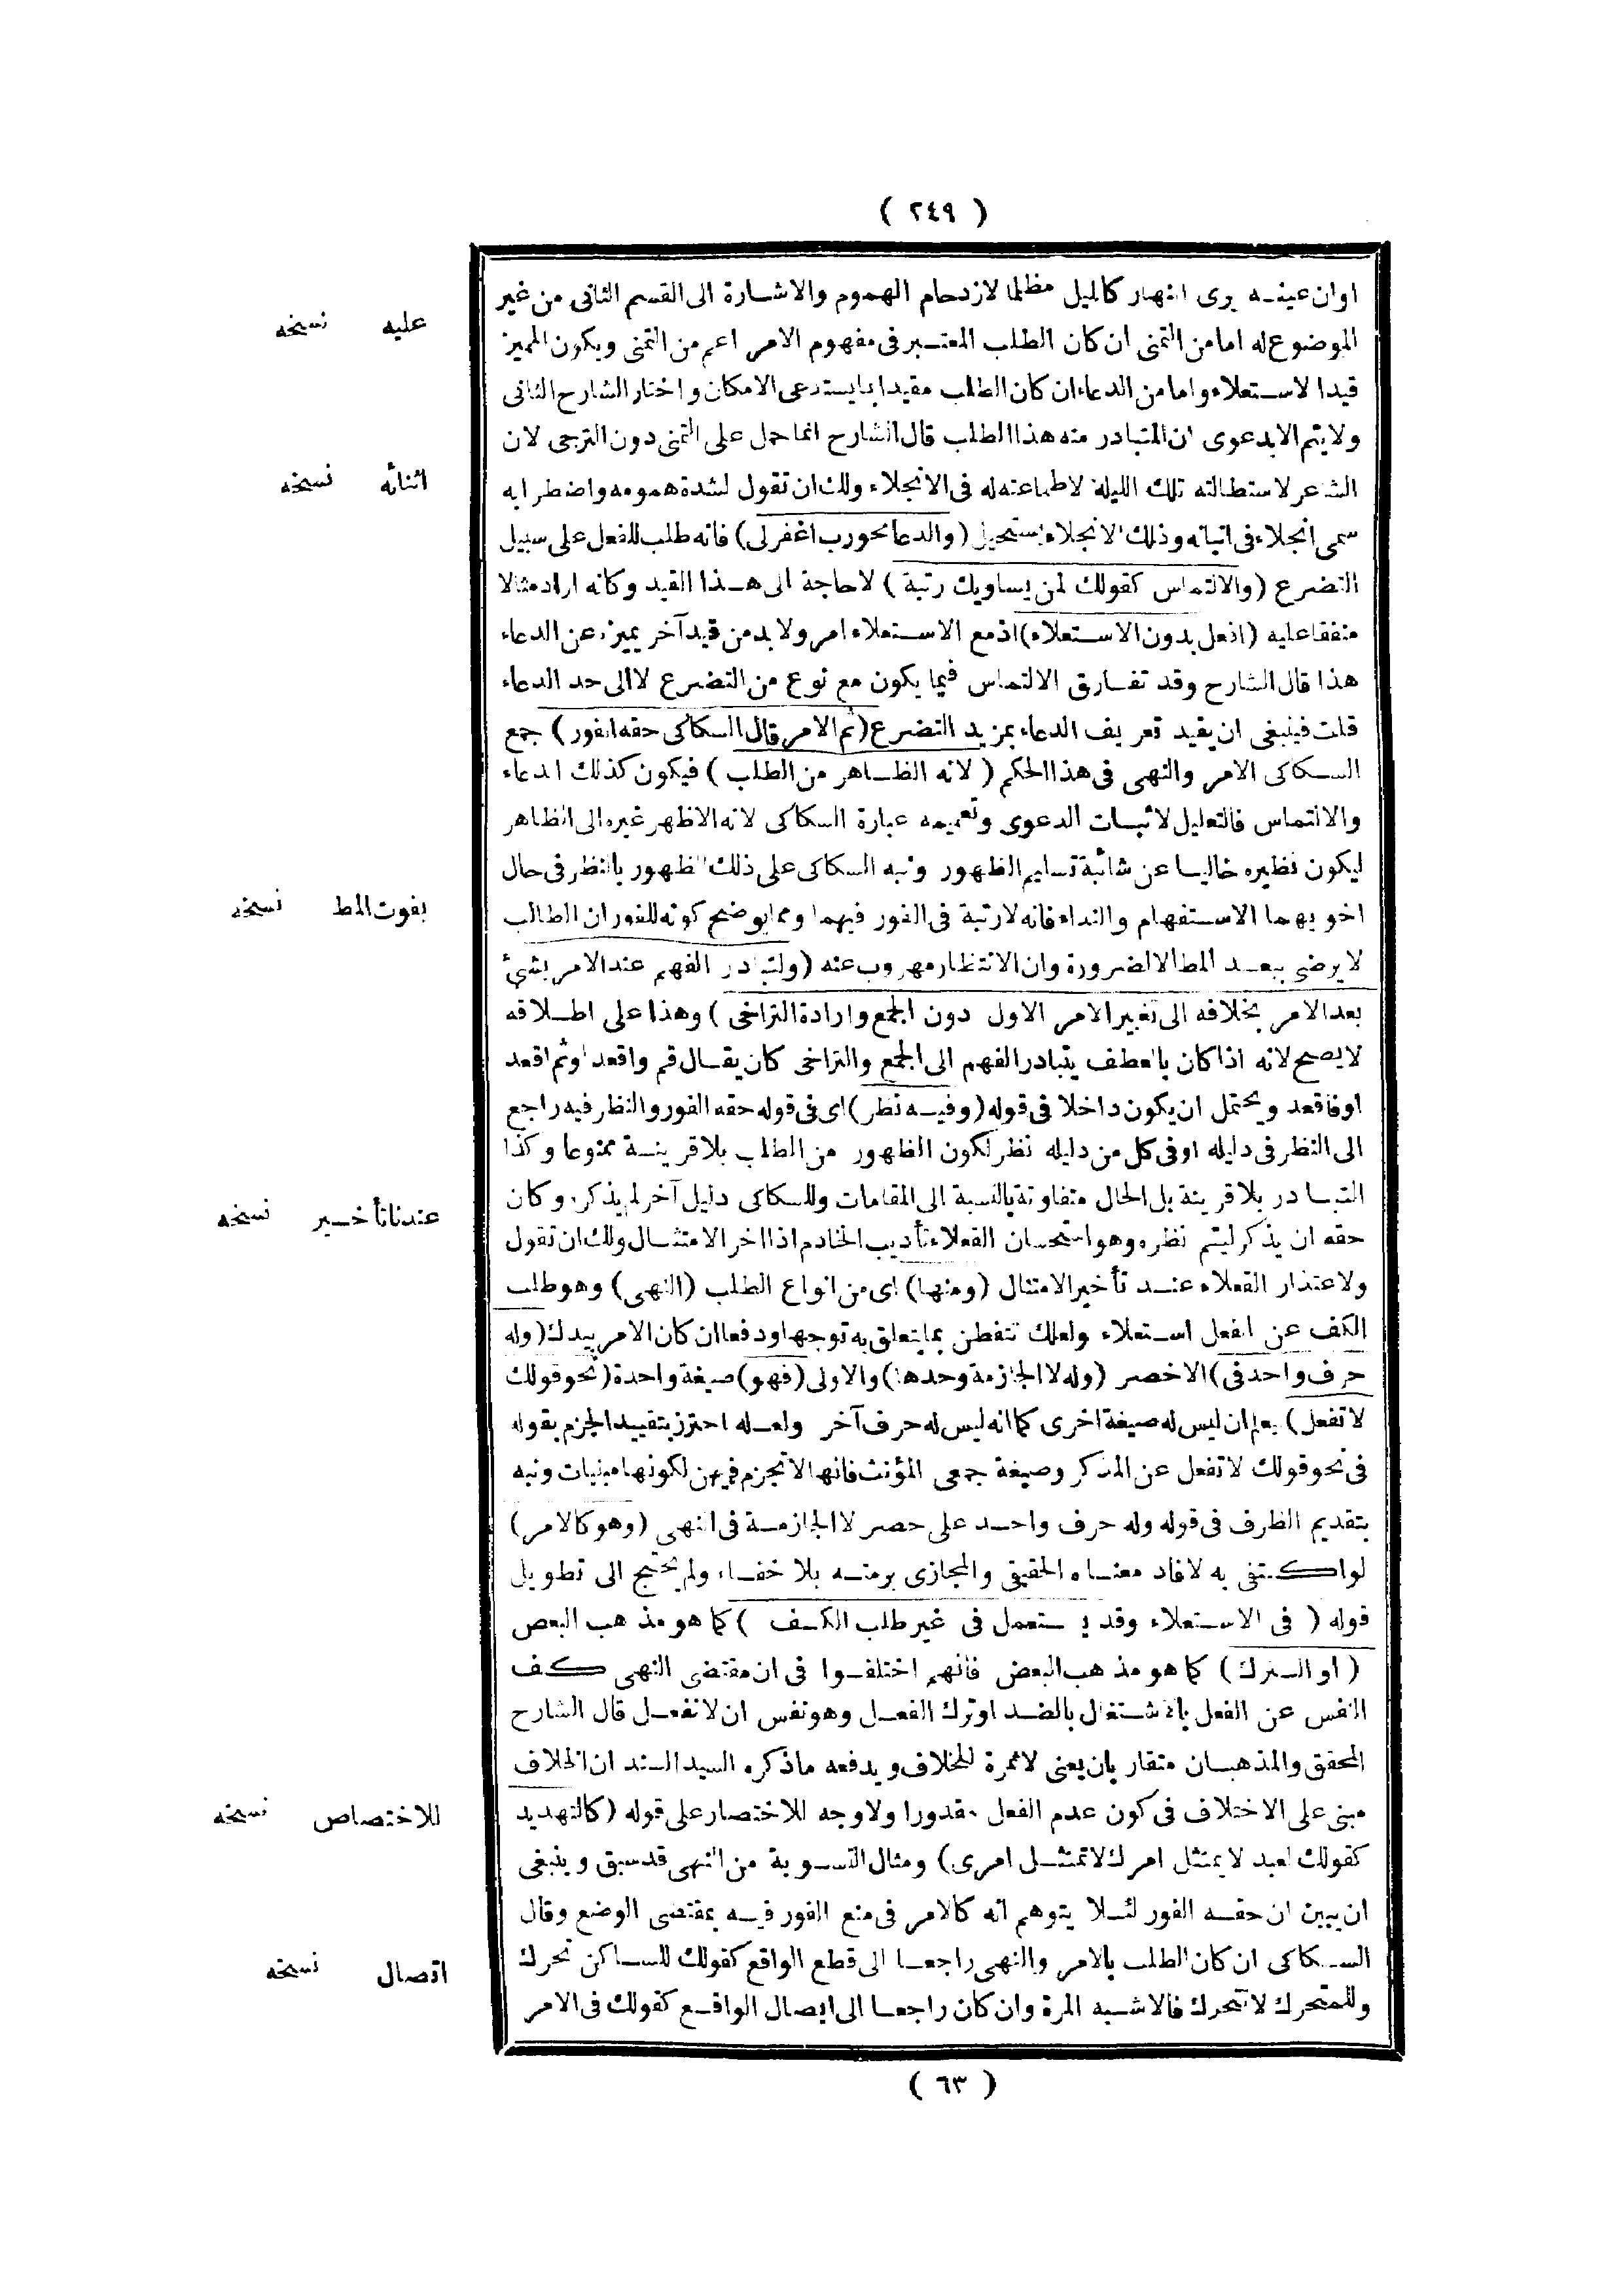 ( ٢٤٩ )
او ان عينه يرى النهار كالليل مظلما لازدحام الهموم والاشارة الى القسم الثانى من غير
الموضوع له اما من التمنى ان كان الطلب المعتبر فى مفهوم الامر اعم من التمنى ويكون المميز
قيدا لاستعلاء واما من الدعاء ان كان الطلب مقيدا بما يستدعى الامكان واختار الشارح الثانى
ولا يتم الا بدعوى ان المتبادر منه هذا الطلب قال الشارح انما حمل على التمنى دون الترجى لان
الشاعر لاستطالته تلك الليلة لاطماعته له فى الانجلاء ولك ان تقول لشدة همومه واضطرابه
سمى انجلاء فى اتيانه وذلك الانجلاء يستحيل (والدعاء نحو رب اغفر لى) فانه طلب للفعل على سبيل
التضرع (والالتماس كقولك لمن يساويك رتبة) لا حاجة الى هذا القيد وكانه اراد مثالا
متفقا عليه (افعل بدون الاستعلاء) اذ مع الاستعلاء امر ولا بد من قيد آخر يميزه عن الدعاء
هذا قال الشارح وقد تفارق الالتماس فيما يكون مع نوع من التضرع لا الى حد الدعاء
قلت فينبغى ان يقيد تعريف الدعاء بمزيد التضرع (ثم الامر قال السكاكى حقه الفور) جمع
السكاكى الامر والنهى فى هذا الحكم (لانه الظاهر من الطلب) فيكون كذلك الدعاء
والالتماس فالتعليل لاثبات الدعوى وتعميمه عبارة السكاكى لانه الاظهر غيره الى الظاهر
ليكون نظيره خاليا عن شائبة تسليم الظهور ونبه السكاكى على ذلك الظهور بالنظر فى حال
اخويهما الاستفهام والنداء فانه لا رتبة فى الفور فيهما ومما يوضح كونه للفور ان الطالب
لا يرضى ببعد المط الا لضرورة وان الانتظار مهروب عنه (ولتبادر الفهم عند الامر بشئ
بعد الامر بخلافه الى تغيير الامر الاول دون الجمع وارادة التراخى) وهذا على اطلاقه
لا يصح لانه اذا كان بالعطف يتبادر الفهم الى الجمع والتراخى كان يقال قم واقعد او ثم اقعد
او فاقعد ويحتمل ان يكون داخلا فى قوله (وفيه نظر) اى فى قوله حقه الفور والنظر فيه راجع
الى النظر فى دليله او فى كل من دليله نظر لكون الظهور من الطلب بلا قرينة ممنوعا وكذا
التبادر بلا قرينة بل الحال متفاوتة بالنسبة الى المقامات وللسكاكى دليل آخر لم يذكره وكان
حقه ان يذكر ليتم نظره وهو استحسان العقلاء تأديب الخادم اذا اخر الامتثال ولك ان تقول
ولاعتذار العقلاء عند تأخير الامتثال (ومنها) اى من انواع الطلب (النهى) وهو طلب
الكف عن الفعل استعلاء ولعلك تتفطن بما يتعلق به توجها ودفعا ان كان الامر بيدك (وله
حرف واحد فى) الاخصر (وله لا الجازمة وحدها) والاولى (فهو) صيغة واحدة (نحو قولك
لا تفعل) يعلم ان ليس له صيغة اخرى كما انه ليس له حرف آخر ولعله احترز بتقييد الجزم بقوله
فى نحو قولك لا تفعل عن المذكر وصيغة جمعى المؤنث فانها لا تجزم فيهن لكونها مبنيات ونبه
بتقديم الظرف فى قوله وله حرف واحد على حصر لا الجازمة فى النهى (وهو كالامر)
لو اكتفى به لافاد معناه الحقيقى والمجازى برمته بلا خفاء ولم يحتج الى تطويل
قوله (فى الاستعلاء وقد يستعمل فى غير طلب الكف) كما هو مذهب البعض
(او الترك) كما هو مذهب البعض فانهم اختلفوا فى ان مقتضى النهى كف
النفس عن الفعل بالاشتغال بالضد او ترك الفعل وهو نفس ان لا تفعل قال الشارح
المحقق والمذهبان متقاربان يعنى لا ثمرة للخلاف ويدفعه ما ذكره السيد السند ان الخلاف
مبنى على الاختلاف فى كون عدم الفعل مقدورا ولا وجه للاختصار على قوله (كالتهديد
كقولك لعبد لا يمتثل امرك لا تمتثل امرى) ومثال التسوية من النهى قد سبق وينبغى
ان يبين ان حقه الفور لئلا يتوهم انه كالامر فى منع الفور فيه بمقتضى الوضع وقال
السكاكى ان كان الطلب بالامر والنهى راجعا الى قطع الواقع كقولك للساكن تحرك
وللمتحرك لا تتحرك فالاشبه المرة وان كان راجعا الى ايصال الواقع كقولك فى الامر
( ٦٣ )
عليه نسخه
اثنائه نسخه
بفوت المط نسخه
عندنا تأخير نسخه
للاختصاص نسخه
اتصال نسخه